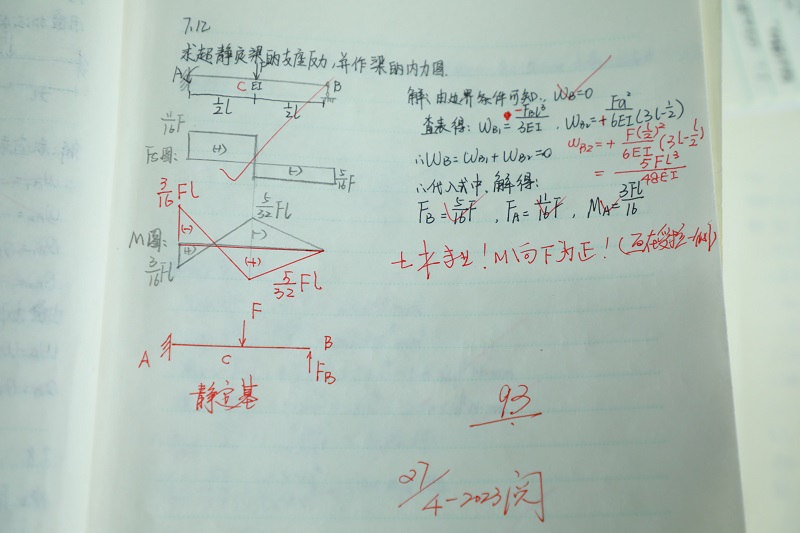 7.12
求超静定梁的支座反力,并作梁的内力图.
A C EI B
½l ½l
11/16 F
Fs图: (+)
(-) 5/16 F
3/16 Fl
5/32 Fl
(-) (-)
M图: (+) (+)
3/16 Fl 5/32 Fl
F
A C B
F_B
静定基
解: 由边界条件可知: ω_B=0
查表得: ω_B1 = -F_Bl³/3EI , ω_B2 = + Fa²/6EI (3l-½)
ω_B2 = + F(½)²/6EI (3l-½)
= 5Fl³/48EI
∴ω_B=ω_B1+ω_B2=0
∴代入式中, 解得:
F_B = 5/16 F , F_A = 11/16 F , M_A = 3Fl/16
土木专业!M向下为正!(画在受拉一侧)
93
27/4-2023阅